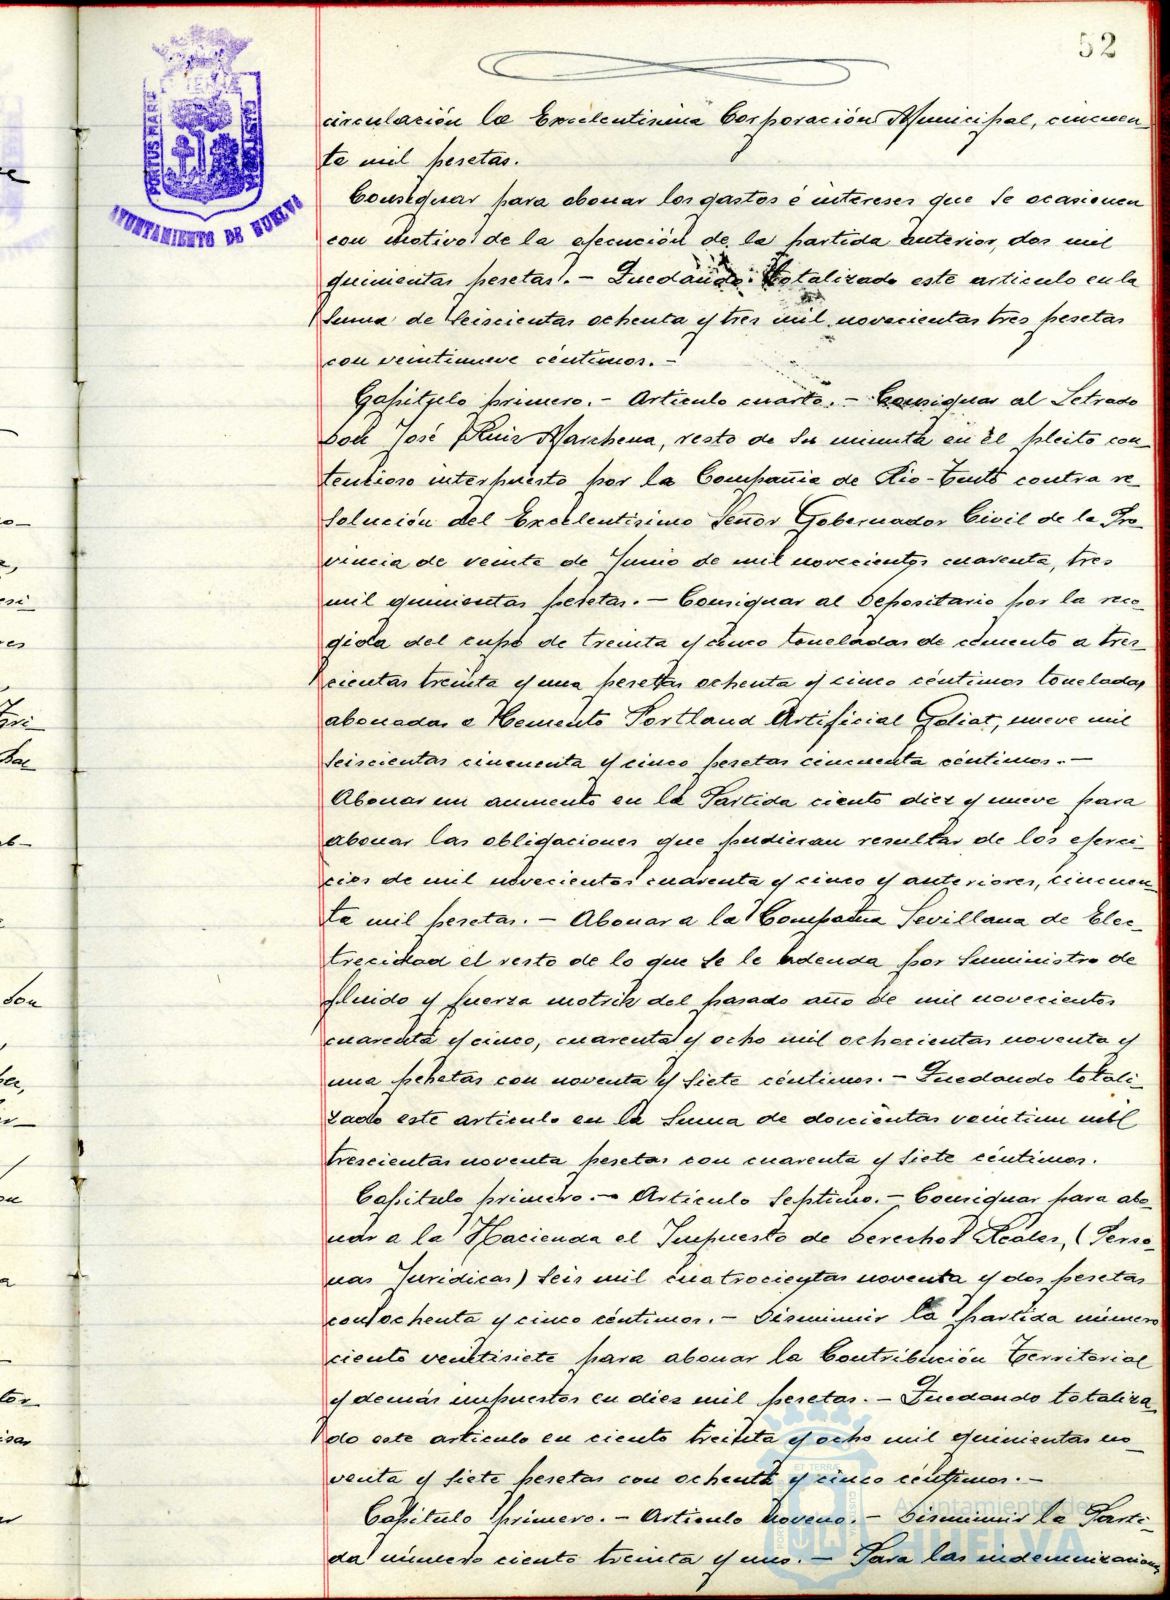 52
PORTUS MARIS
ET TERRÆ
CUSTODIA
AYUNTAMIENTO DE HUELVA
circulación la Excelentisima Corporación Municipal, cincuen-
ta mil pesetas.
Consignar para abonar los gastos é intereses que se ocasionen
con motivo de la ejecución de la partida anterior, dos mil
quinientas pesetas.- Quedando totalizado este articulo en la
suma de seiscientas ochenta y tres mil novecientas tres pesetas
con veintinueve céntimos.-
Capitulo primero.- Articulo cuarto.- Consignar al Letrado
Don José Ruiz Marchena, resto de su minuta en el pleito con-
tencioso interpuesto por la Compañia de Rio-Tinto contra re-
solución del Excelentisimo Señor Gobernador Civil de la Pro-
vincia de veinte de Junio de mil novecientos cuarenta, tres
mil quinientas pesetas.- Consignar al Depositario por la reco-
gida del cupo de treinta y cinco toneladas de cemento a tres-
cientas treinta y una pesetas ochenta y cinco céntimos toneladas
abonadas a Cemento Portland Artificial Goliat, nueve mil
seiscientas cincuenta y cinco pesetas cincuenta céntimos.-
Abonar un aumento en la Partida ciento diez y nueve para
abonar las obligaciones que pudieran resultar de los ejerci-
cios de mil novecientos cuarenta y cinco y anteriores, cincuen-
ta mil pesetas.- Abonar a la Compañia Sevillana de Elec-
trecidad el resto de lo que se le adeuda por suministro de
fluido y fuerza motriz del pasado año de mil novecientos
cuarenta y cinco, cuarenta y ocho mil ochocientas noventa y
una pesetas con noventa y siete céntimos.- Quedando totali-
zado este articulo en la suma de doscientas veintiun mil
trescientas noventa pesetas con cuarenta y siete céntimos.
Capitulo primero.- Articulo septimo.- Consignar para abo-
nar a la Hacienda el Impuesto de Derechos Reales, (Perso-
nas Juridicas) seis mil cuatrocientas noventa y dos pesetas
con ochenta y cinco céntimos.- Disminuir la partida número
ciento veintisiete para abonar la Contribución Territorial
y demás impuestos en diez mil pesetas.- Quedando totaliza-
do este articulo en ciento treinta y ocho mil quinientas no-
venta y siete pesetas con ochenta y cinco céntimos.-
Capitulo primero.- Articulo noveno.- Disminuir la Parti-
da número ciento treinta y uno.- Para las indemnizaciones
Ayuntamiento de
HUELVA